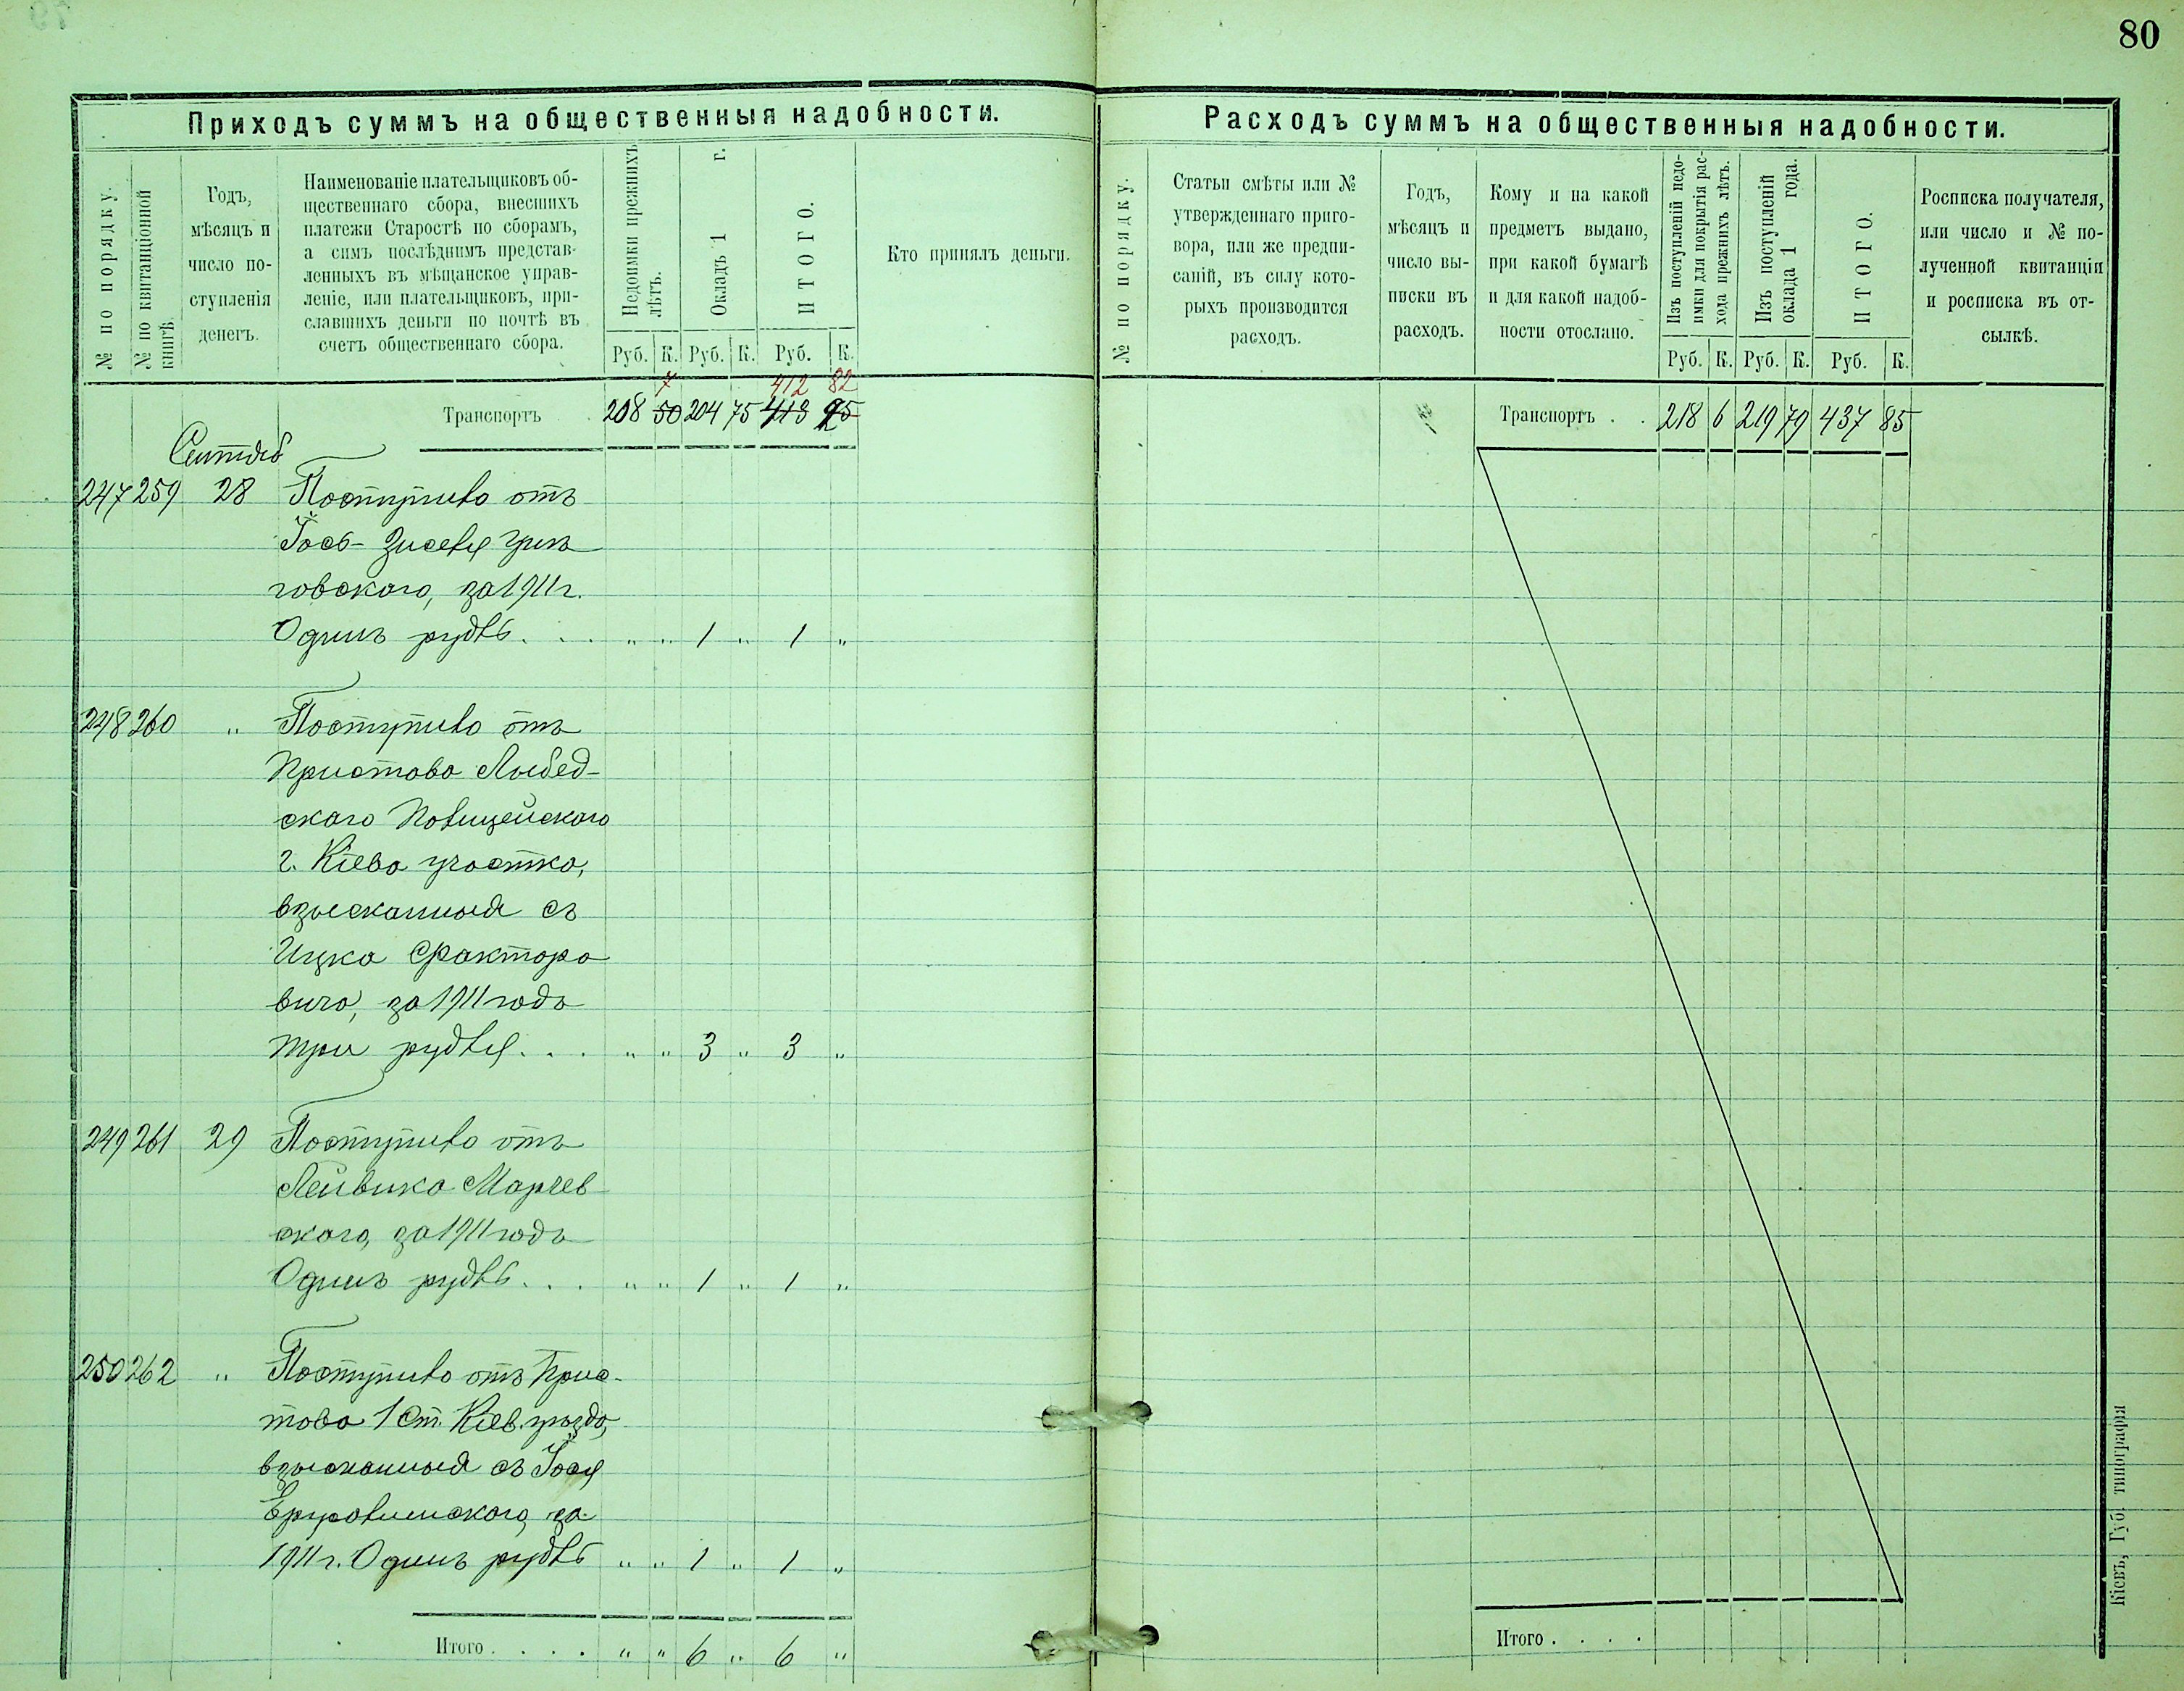 80
Приходъ суммъ на общественныя надобности.
№ по порядку.
№ по квитанціонной
книгѣ.
Годъ,
мѣсяцъ и
число по-
ступленія
денегъ.
Наименованіе плательщиковъ об-
щественнаго сбора, внесшихъ
платежи Старостѣ по сборамъ,
а симъ послѣднимъ представ-
ленныхъ въ мѣщанское управ-
леніе, или плательщиковъ, при-
славшихъ деньги по почтѣ въ
счетъ общественнаго сбора.
Недоимки прежнихъ
лѣтъ.
Окладъ 1 г.
ИТОГО.
Руб. К. Руб. К. Руб. К.
Кто принялъ деньги.
7 412 82
Транспортъ 208 50 204 75 413 25
Сентяб
247 259 28 Поступило отъ
Іось-
говскаго, за 1911 г.
Одинъ рубль . . . " " 1 " 1 "
248 260 " Поступило отъ
Пристава Лыбед-
скаго Полицейскаго
г. Кіева участка,
взысканныя съ
Ицка Факторо
вича, за 1911 годъ
три рубля . . . " " 3 " 3 "
249 261 29 Поступило отъ
Лейвика Марчев
скаго, за 1911 годъ
Одинъ рубль . . . " " 1 " 1 "
250 262 " Поступило отъ Прис-
тава 1 Ст. Кіев. уѣзда,
взысканныя съ Іося
Ерусалимскаго, за
1911 г. Одинъ рубль " " 1 " 1 "
Итого . . . . " " 6 " 6 "
Расходъ суммъ на общественныя надобности.
№ по порядку.
Статьи смѣты или №
утвержденнаго приго-
вора, или же предпи-
саній, въ силу кото-
рыхъ производится
расходъ.
Годъ,
мѣсяцъ и
число вы-
писки въ
расходъ.
Кому и на какой
предметъ выдано,
при какой бумагѣ
и для какой надоб-
ности отослано.
Изъ поступленій недо-
имки для покрытія рас-
хода прежнихъ лѣтъ.
Изъ поступленій
оклада 1 года.
ИТОГО.
Руб. К. Руб. К. Руб. К.
Росписка получателя,
или число и № по-
лученной квитанціи
и росписка въ от-
сылкѣ.
Транспортъ . . 218 6 219 79 437 85
Итого . . . .
Кіевъ, Губ. типографія